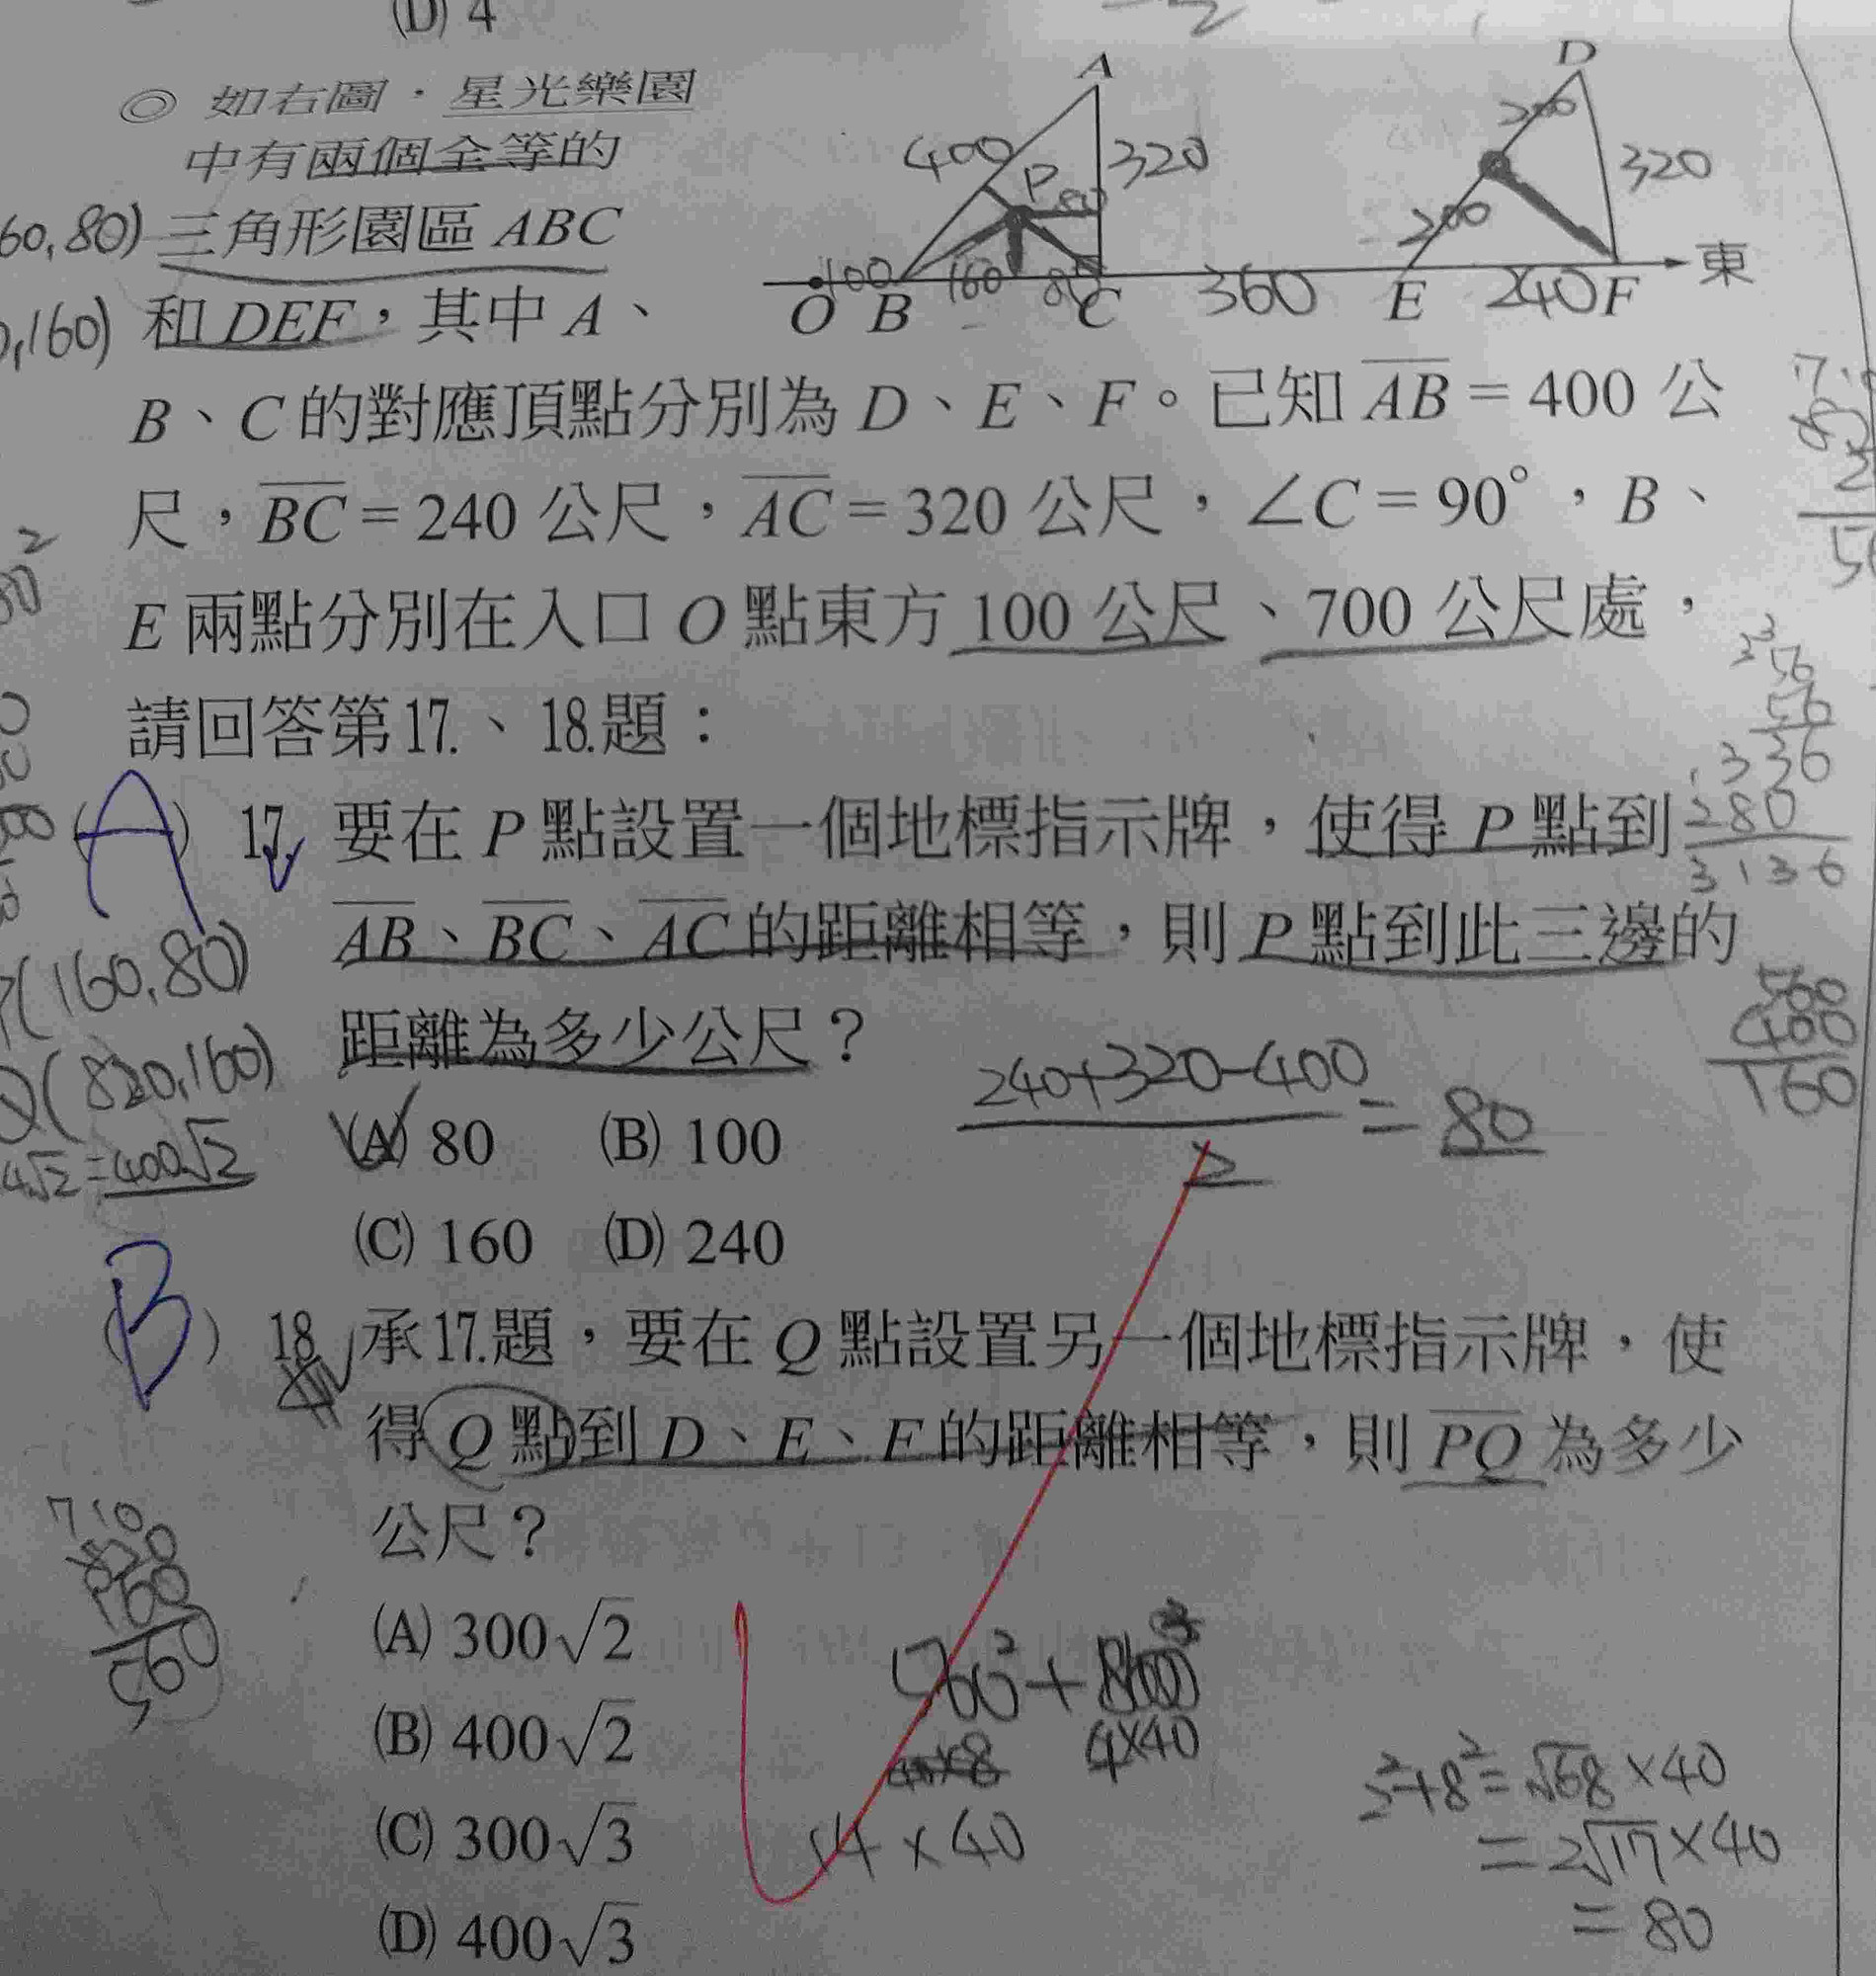 (D) 4
◎ 如右圖,星光樂園
中有兩個全等的
三角形園區 ABC
和 DEF,其中 A、
B、C 的對應頂點分別為 D、E、F。已知 AB = 400 公
尺,BC = 240 公尺,AC = 320 公尺,∠C = 90°,B、
E 兩點分別在入口 O 點東方 100 公尺、700 公尺處,
請回答第 17.、18.題:
A
400
320
P
80
100
160
80
O B C
360
D
200
200
320
E 240 F
東
60,80)
,160)
(A) 17. 要在 P 點設置一個地標指示牌,使得 P 點到
AB、BC、AC 的距離相等,則 P 點到此三邊的
距離為多少公尺?
(A) 80 (B) 100
(C) 160 (D) 240
240+320-400
2
= 80
(160,80)
Q(820,160)
4√2=400√2
56
56
336
280
3136
560
400
160
(B) 18. 承17.題,要在 Q 點設置另一個地標指示牌,使
得 Q 點到 D、E、F 的距離相等,則 PQ 為多少
公尺?
(A) 300√2
(B) 400√2
(C) 300√3
(D) 400√3
710
820
160
560
4×40
14×40
2²+8²=√68×40
=2√17×40
=80